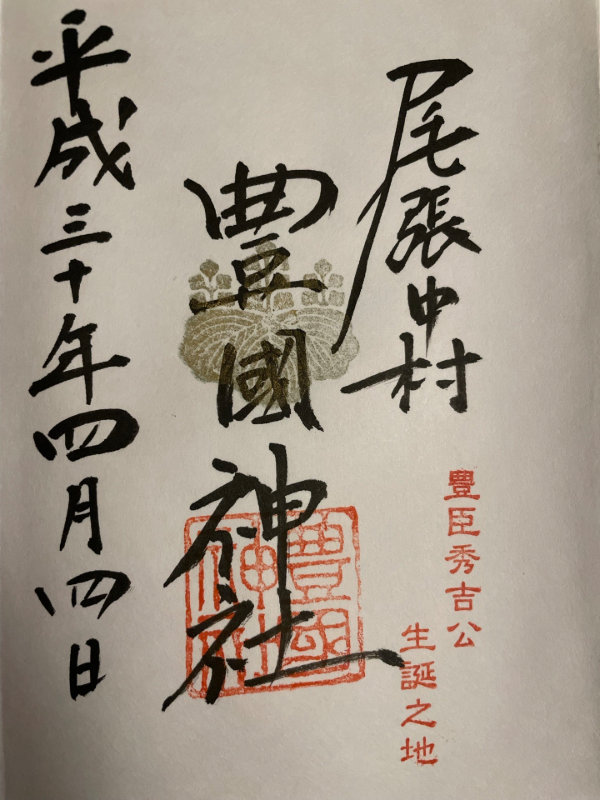 尾張中村
豊臣秀吉公
生誕之地
豊國神社
豊國神社
平成三十年四月四日